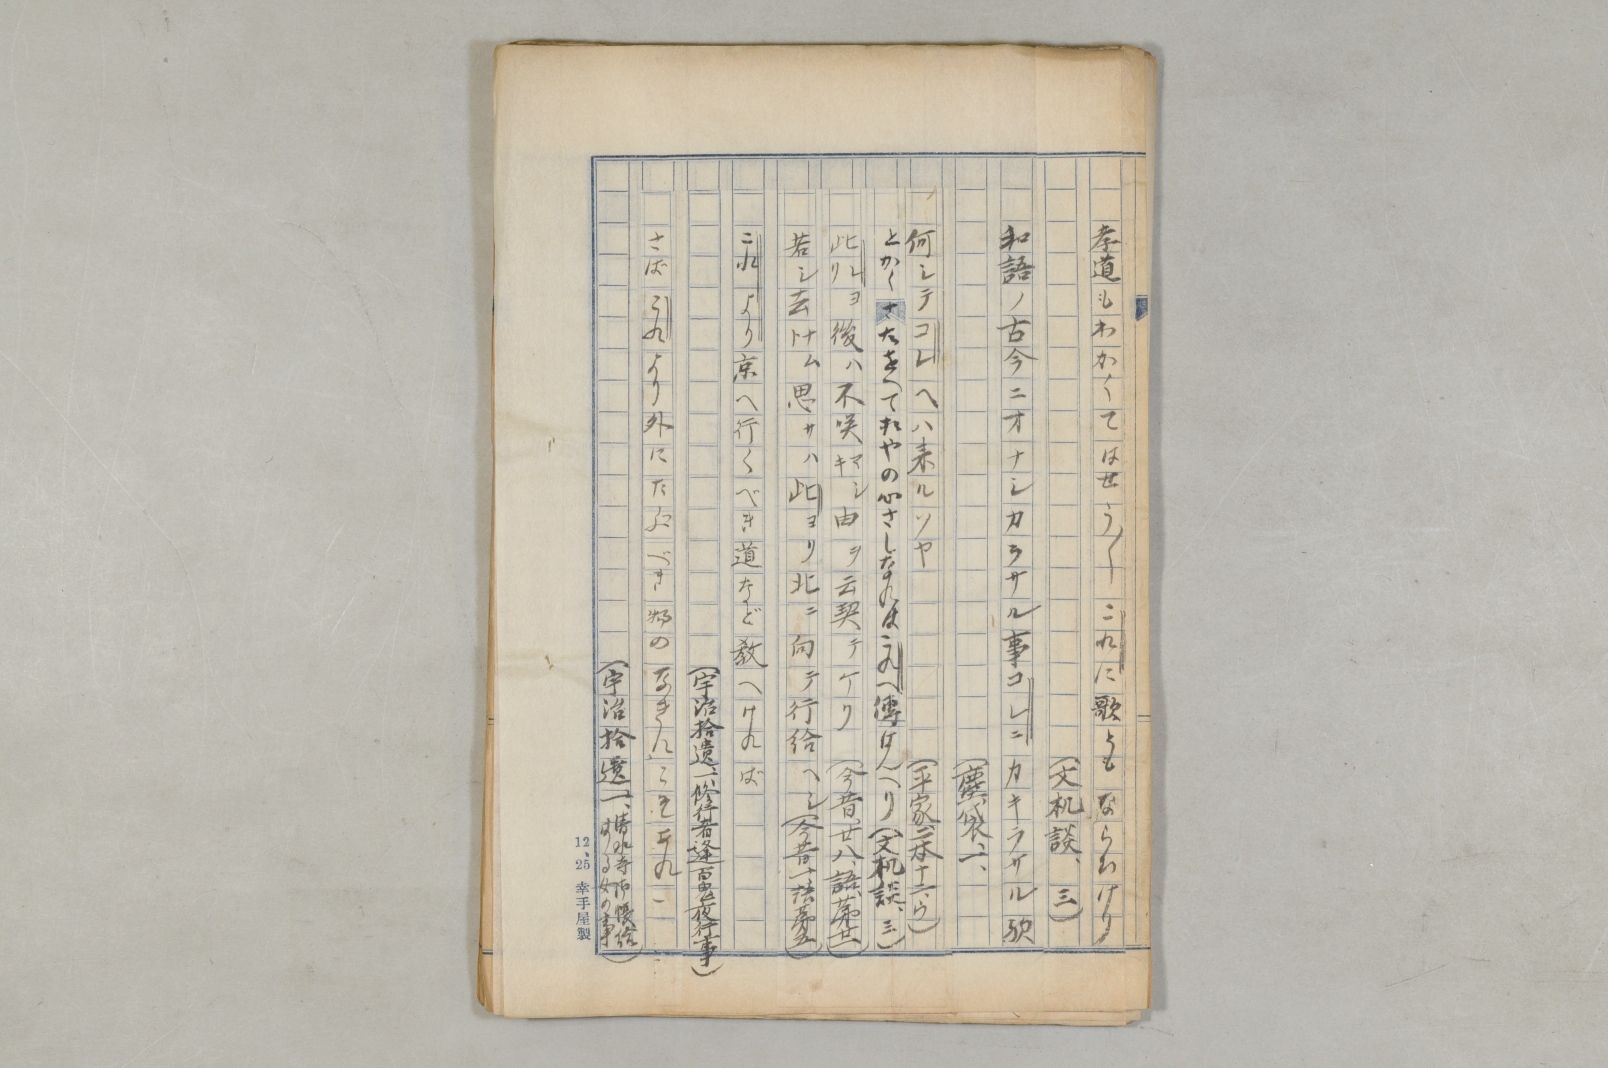 孝道もわかくてはせう〳〵これに歌ともならひけり
(文机談、三)
和語ノ古今ニオナシカラサル事コレニカキラサル歟
(塵袋、二、
何シテコレヘハ来ルソヤ
(平家一本十二、ウ)
とかくさたをへてたやの心さしなれはこれへ傳はんへり(文机談、三)
此リレヨ後ハ不咲キマシ由ヲ云契テケリ(今昔、廿八、語、第廿)
若シ去トナム思サハ此ヨリ北ニ向テ行給ヘシ(今昔
これより京へ行くべき道など教へければ
(宇治拾遺、一、修行者逢百鬼夜行事)
さばこれより外にたぶべき物のなきにこそあれ
(宇治拾遺一、清水寺御帳給はる女の事)
12、25 幸手屋製